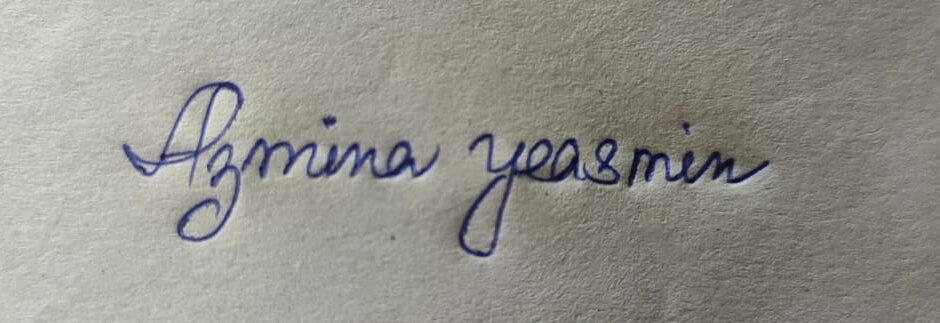 Azmina yeasmin